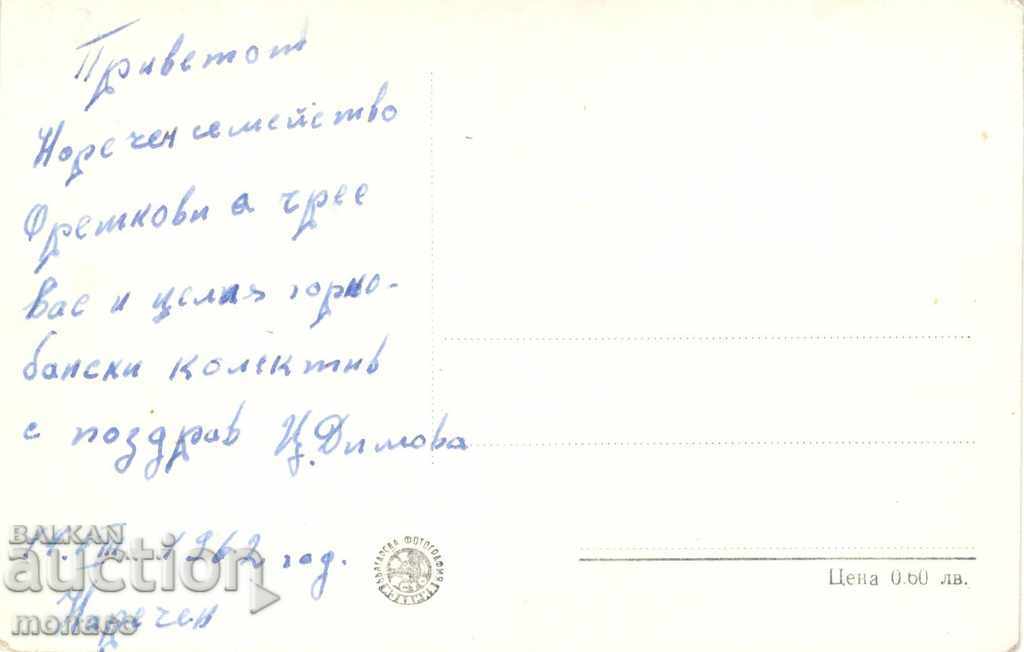 Приветот
Наречен семейство
Фреткови а чрес
вас и целия горно-
бански колектив
с поздрав Ц. Димова
1962 год.
Наречен
БЪЛГАРСКА ФОТОГРАФИЯ
Цена 0.60 лв.
BALKAN
auction
монаго